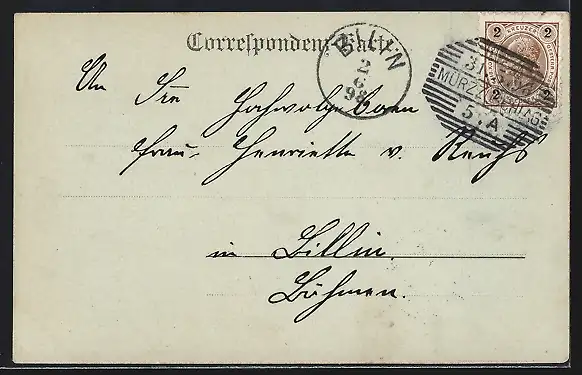 Correspondenz-Karte
BILIN
2
6
98
2 KREUZER 2
2 2
31
MÜRZZUSCHLAG
5.A
An Ihre Hochwolgeboren
Frau Henriette v. Reuß
in Billin.
Böhmen.